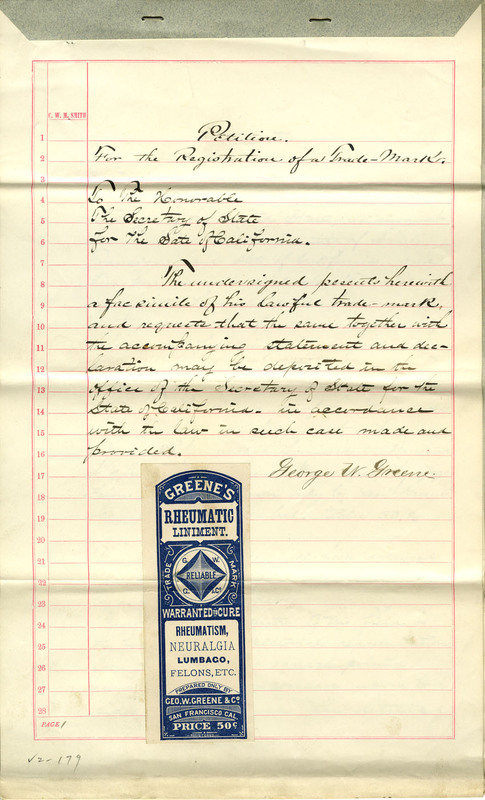 C. W. M. SMITH
Petition.
For the Registration of a Trade-Mark.
To The Honorable
The Secretary of State
for The Sate of California.
The undersigned persents herewith
a facsimile of his lawful trade-mark,
and requests that the same together with
the accompanying statement and dec-
laration may be deposited in the
office of the Secretary of State for the
State of California. in accordance
with the law in such case made and
provided.
George W. Greene.
1
2
3
4
5
6
7
8
9
10
11
12
13
14
15
16
17
18
19
20
21
22
23
24
25
26
27
28
GREENE'S
RHEUMATIC
LINIMENT.
TRADE MARK
G. W.
RELIABLE
G. & Co
WARRANTED TO CURE
RHEUMATISM,
NEURALGIA
LUMBAGO,
FELONS, ETC.
PREPARED ONLY BY
GEO. W. GREENE & Co
SAN FRANCISCO CAL.
PRICE 50c
PAGE 1
√2-179